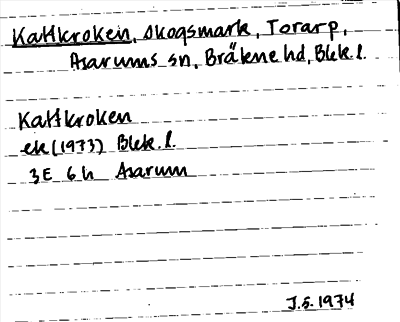 Kattkroken, Skogsmark, Torarp,
Asarums sn, Bräkne hd, Blek. l.
Kattkroken
ek (1973) Blek. l.
3E 6h Asarum
J.S. 1974